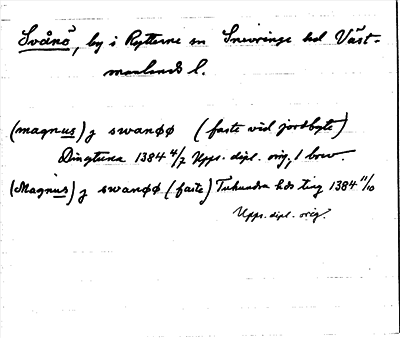 Svånö, by i Rytterne sn Snevringe hd Väst-
manlands l.
(magnus) j swanøø (faste vid jordbyte)
Dingtuna 1384 4/7 Upps. dipl. orig, 1 brev.
(Magnus) j swanøø (faste) Tuhundra hds ting 1384 11/10
Upps. dipl. orig.